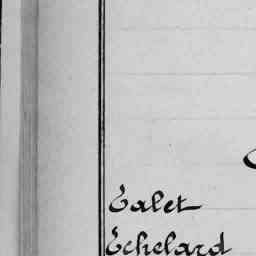 Talet
Echelard